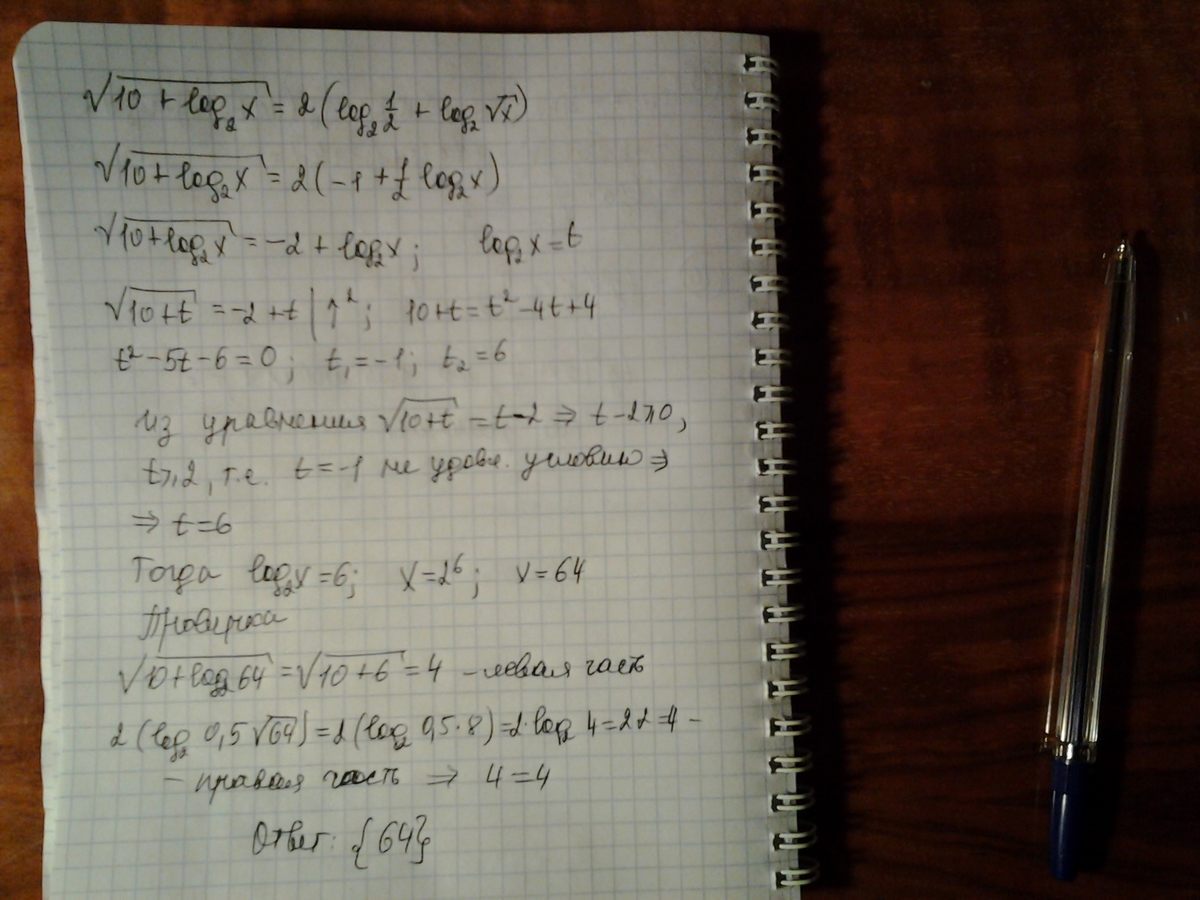 √10 + log₂x = 2(log₂ 1/2 + log₂ √x)
√10+log₂x = 2(-1 + 1/2 log₂x)
√10+log₂x = -2 + log₂x; log₂x = t
√10+t = -2+t | ↑²; 10+t = t² -4t+4
t² -5t -6 = 0; t₁ = -1; t₂ = 6
Из уравнения √10+t = t-2 ⇒ t-2⩾0,
t⩾2, т.е. t=-1 не удовл. условию ⇒
⇒ t=6
Тогда log₂x = 6; x=2⁶; x=64
Проверка
√10+log₂64 = √10+6 = 4 – левая часть
2(log₂ 0,5√64) = 2(log₂ 0,5·8) = 2·log₂ 4 = 2·2 = 4 –
– правая часть ⇒ 4=4
Ответ: {64}